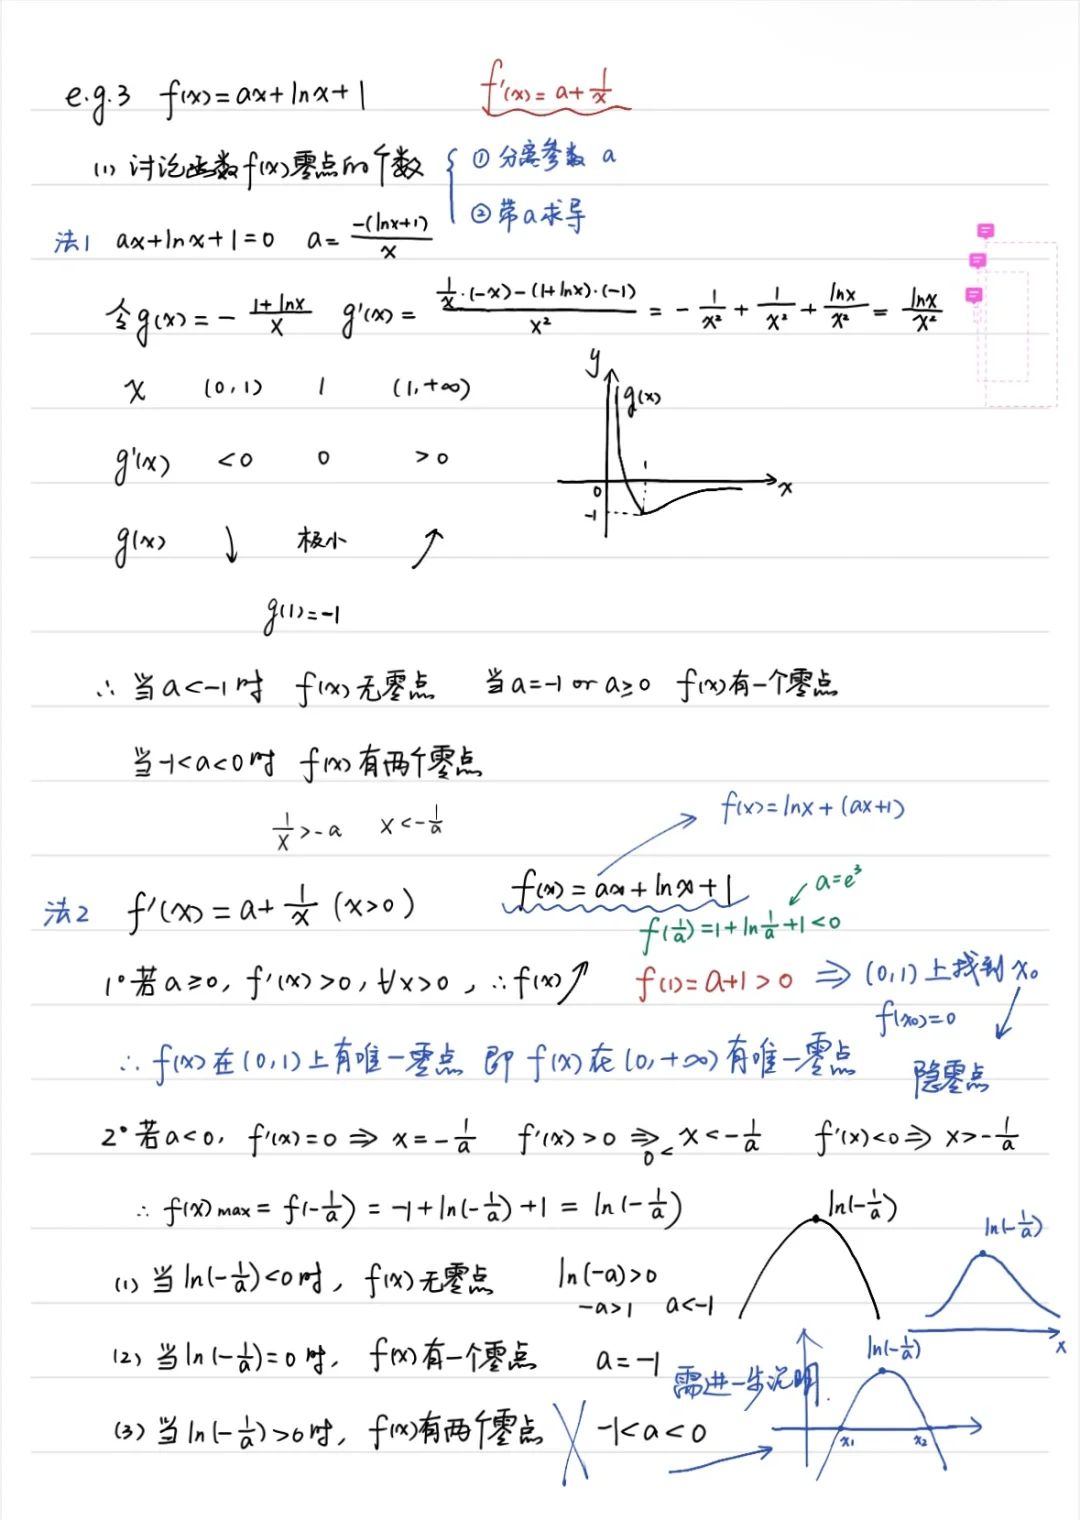 e.g.3 f(x)=ax+lnx+1 f'(x)=a+1/x
(1) 讨论函数f(x)零点的个数 { ① 分离参数 a
② 带a求导
法1 ax+lnx+1=0 a=-(lnx+1)/x
令g(x)=-(1+lnx)/x g'(x)=(1/x·(-x)-(1+lnx)·(-1))/x² = -1/x²+1/x²+lnx/x²=lnx/x²
x (0,1) 1 (1,+∞)
g'(x) <0 0 >0
g(x) ↓ 极小 ↗
g(1)=-1
y
g(x)
1
0
x
-1
∴ 当a<-1时 f(x)无零点 当a=-1 or a≥0 f(x)有一个零点
当-1<a<0时 f(x)有两个零点
1/x>-a x<-1/a
f(x)=lnx+(ax+1)
法2 f'(x)=a+1/x (x>0) f(x)=ax+lnx+1
a=e³
f(1/a)=1+ln1/a+1<0
1°若a≥0, f'(x)>0, ∀x>0, ∴f(x)↗ f(1)=a+1>0 ⇒ (0,1)上找到x₀
f(x₀)=0
∴ f(x)在(0,1)上有唯一零点 即 f(x)在(0,+∞)有唯一零点
隐零点
2°若a<0, f'(x)=0 ⇒ x=-1/a f'(x)>0 ⇒ 0<x<-1/a f'(x)<0 ⇒ x>-1/a
∴ f(x)max=f(-1/a)=-1+ln(-1/a)+1=ln(-1/a)
ln(-1/a)
ln(-1/a)
x
(1) 当ln(-1/a)<0时, f(x)无零点 ln(-a)>0
-a>1 a<-1
(2) 当ln(-1/a)=0时, f(x)有一个零点 a=-1
需进一步说明.
(3) 当ln(-1/a)>0时, f(x)有两个零点 -1<a<0
ln(-1/a)
x₁ x₂